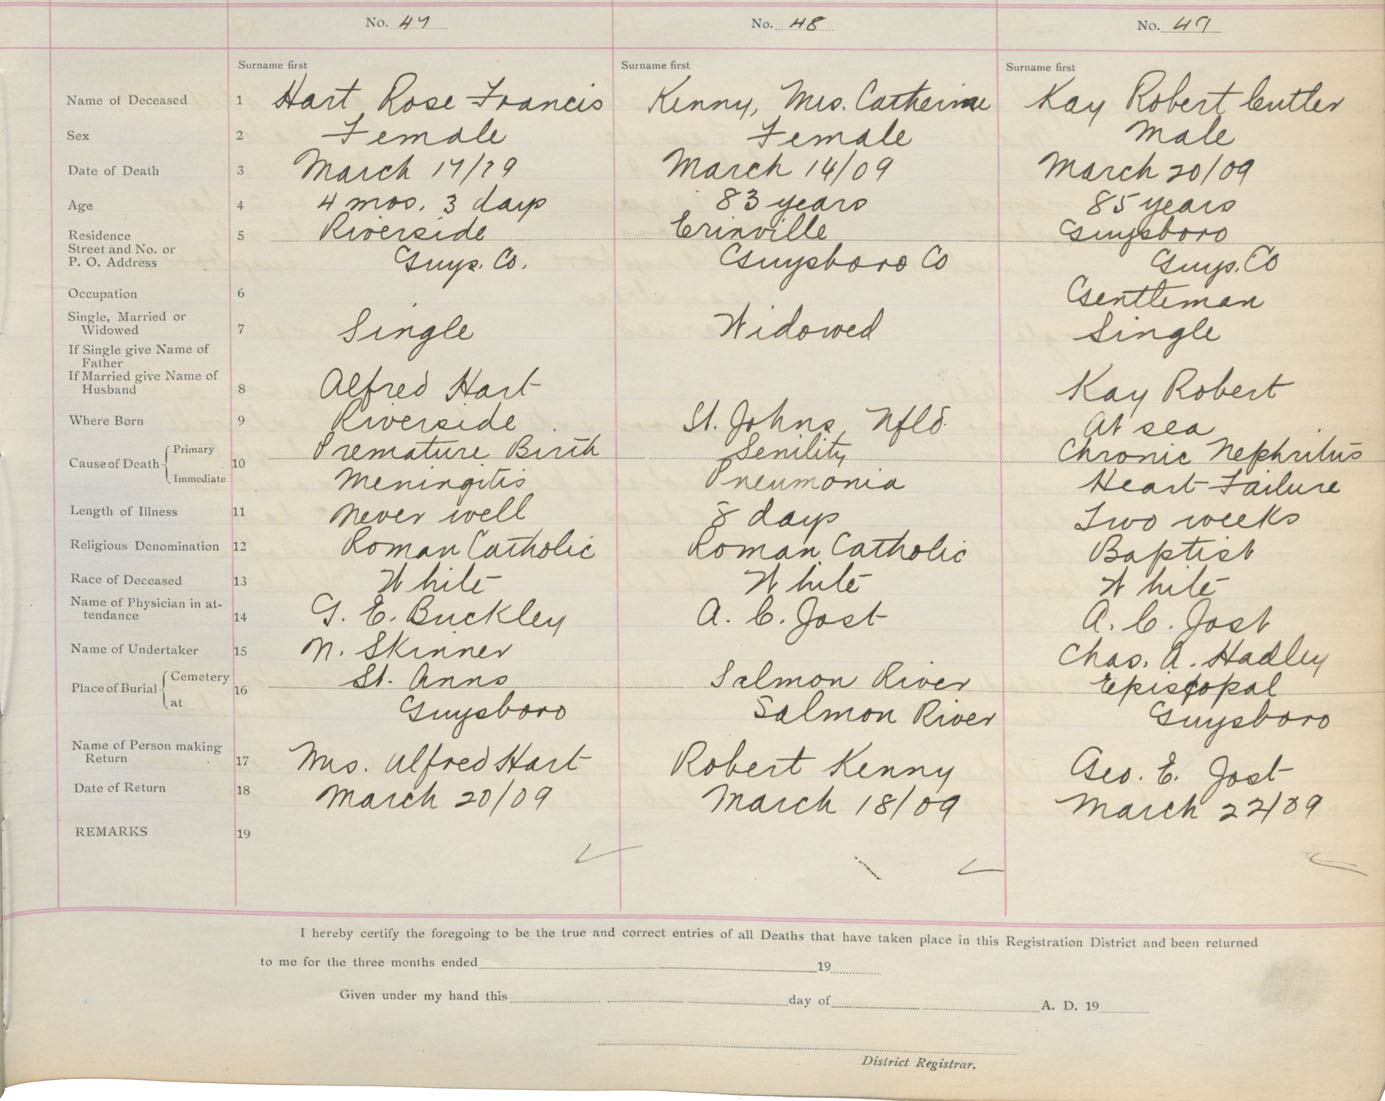 No. 47 No. 48 No. 49
Surname first Surname first Surname first
Name of Deceased 1 Hart Rose Francis Kenny, Mrs. Catherine Kay Robert Cutler
Sex 2 Female Female Male
Date of Death 3 March 17/19 March 14/09 March 20/09
Age 4 4 mos. 3 days 83 years 85 years
Residence 5 Riverside Erinville Guysboro
Street and No. or
P. O. Address Guys. Co. Guysboro Co Guys. Co
Occupation 6 Gentleman
Single, Married or
Widowed 7 Single Widowed Single
If Single give Name of
Father
If Married give Name of
Husband 8 Alfred Hart Kay Robert
Where Born 9 Riverside St. Johns, Nfld. At sea
Cause of Death Primary 10 Premature Birth Senility Chronic Nephritus
Immediate Meningitis Pneumonia Heart Failure
Length of Illness 11 never well 8 days Two weeks
Religious Denomination 12 Roman Catholic Roman Catholic Baptist
Race of Deceased 13 White White White
Name of Physician in at-
tendance 14 G. E. Buckley A. C. Jost A. C. Jost
Name of Undertaker 15 N. Skinner Chas. A. Hadley
Place of Burial Cemetery 16 St. Anns Salmon River Episcopal
at Guysboro Salmon River Guysboro
Name of Person making
Return 17 Mrs. Alfred Hart Robert Kenny Geo. E. Jost
Date of Return 18 March 20/09 March 18/09 March 22/09
REMARKS 19
I hereby certify the foregoing to be the true and correct entries of all Deaths that have taken place in this Registration District and been returned
to me for the three months ended 19
Given under my hand this day of A. D. 19
District Registrar.